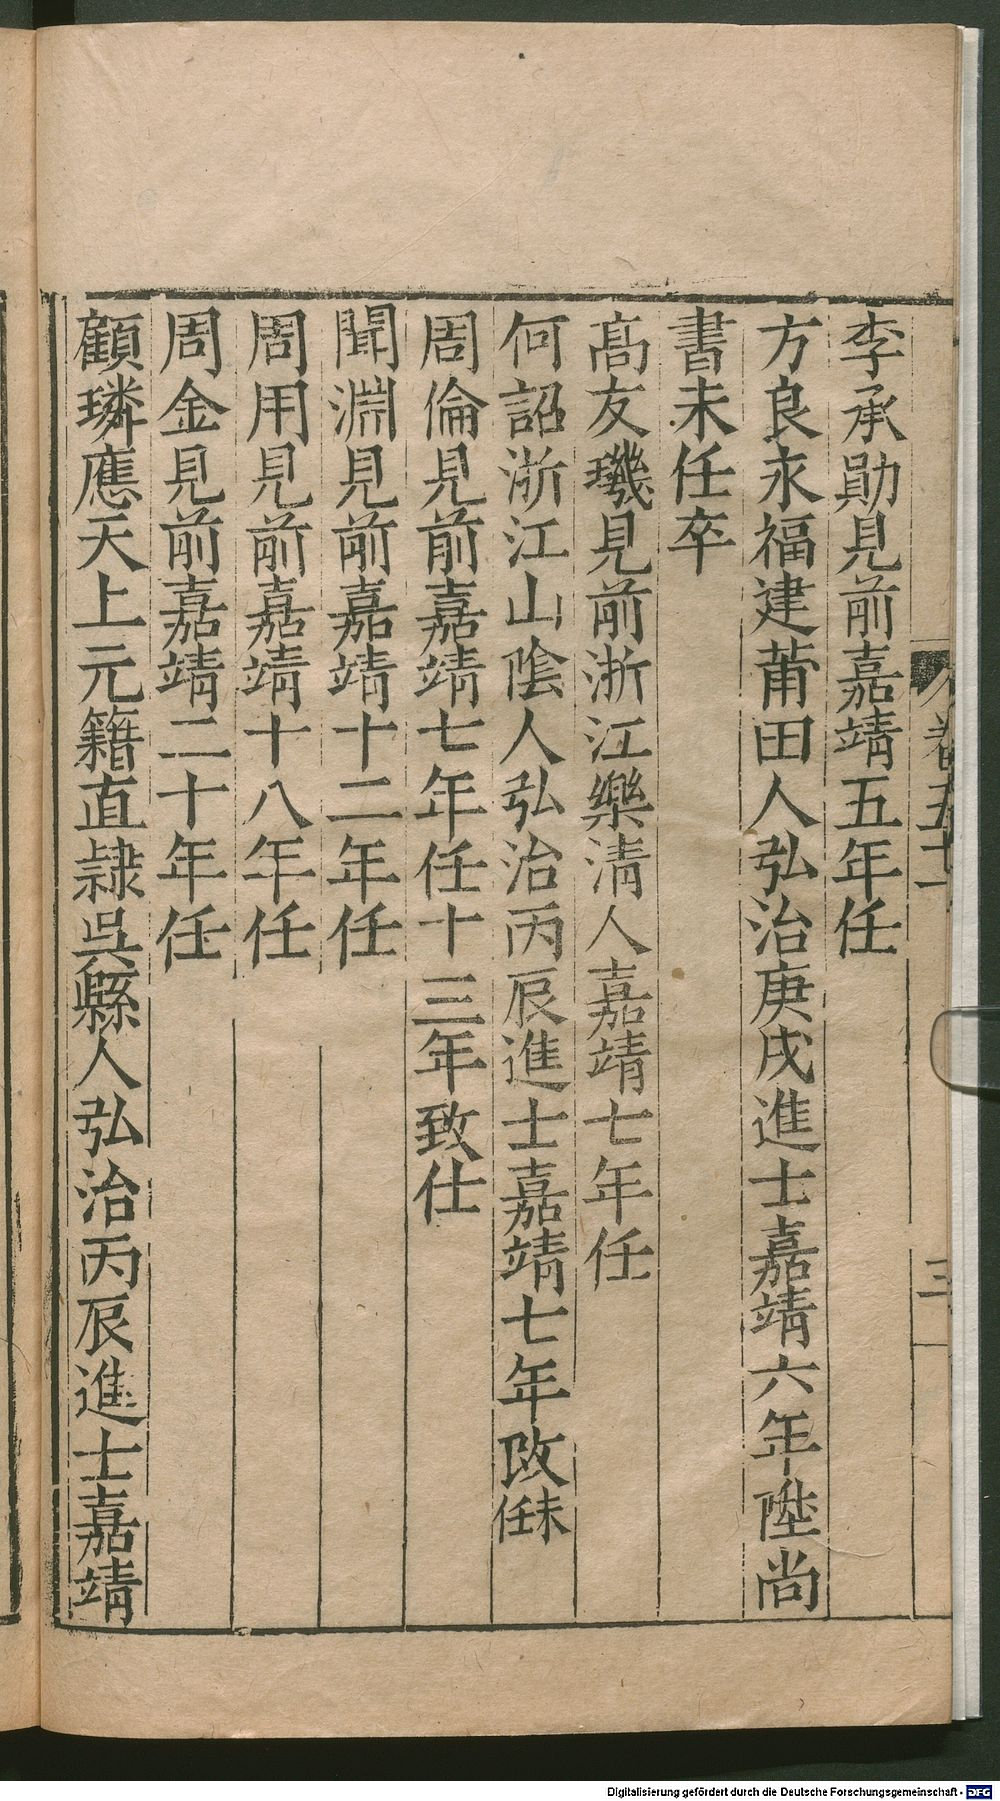 李承勛見前嘉靖五年任
方良永福建莆田人弘治庚戌進士嘉靖六年陞尚
書未任卒
高友璣見前浙江樂清人嘉靖七年任
何詔浙江山陰人弘治丙辰進士嘉靖七年改未任
周倫見前嘉靖七年任十三年致仕
聞淵見前嘉靖十二年任
周用見前嘉靖十八年任
周金見前嘉靖二十年任
顧璘應天上元籍直隷吳縣人弘治丙辰進士嘉靖
卷五十
三
Digitalisierung gefördert durch die Deutsche Forschungsgemeinschaft - DFG